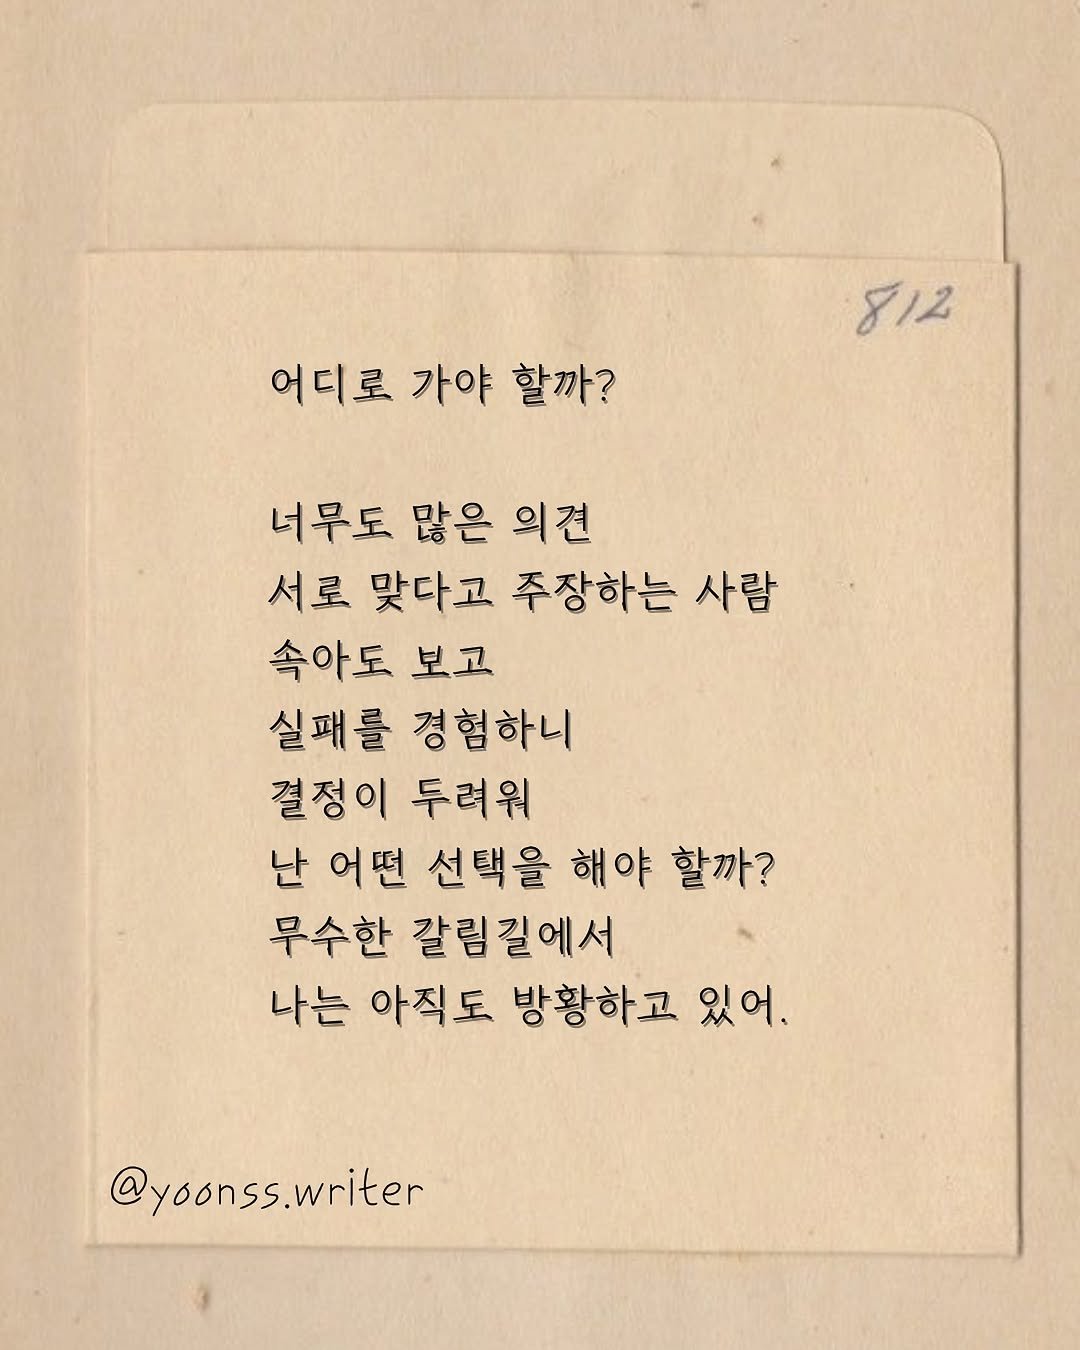 812
어디로 가야 할까?
너무도 많은 의견
서로 맞다고 주장하는 사람
속아도 보고
실패를 경험하니
결정이 두려워
난 어떤 선택을 해야 할까?
무수한 갈림길에서
나는 아직도 방황하고 있어.
@yoonss.writer